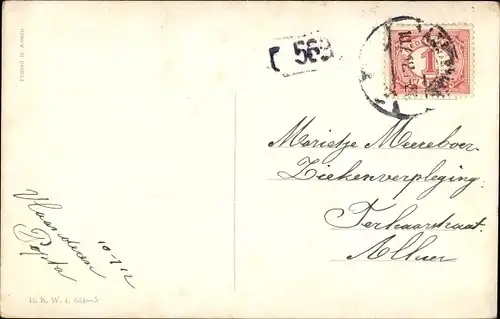 Printed in Austria
[ 563
1
Marietje Meereboer.
Ziekenverpleging.
Terhaarstraat.
Alhier
Vlaanderen
Popta
10-7-12
B. K. W. I. 661-5